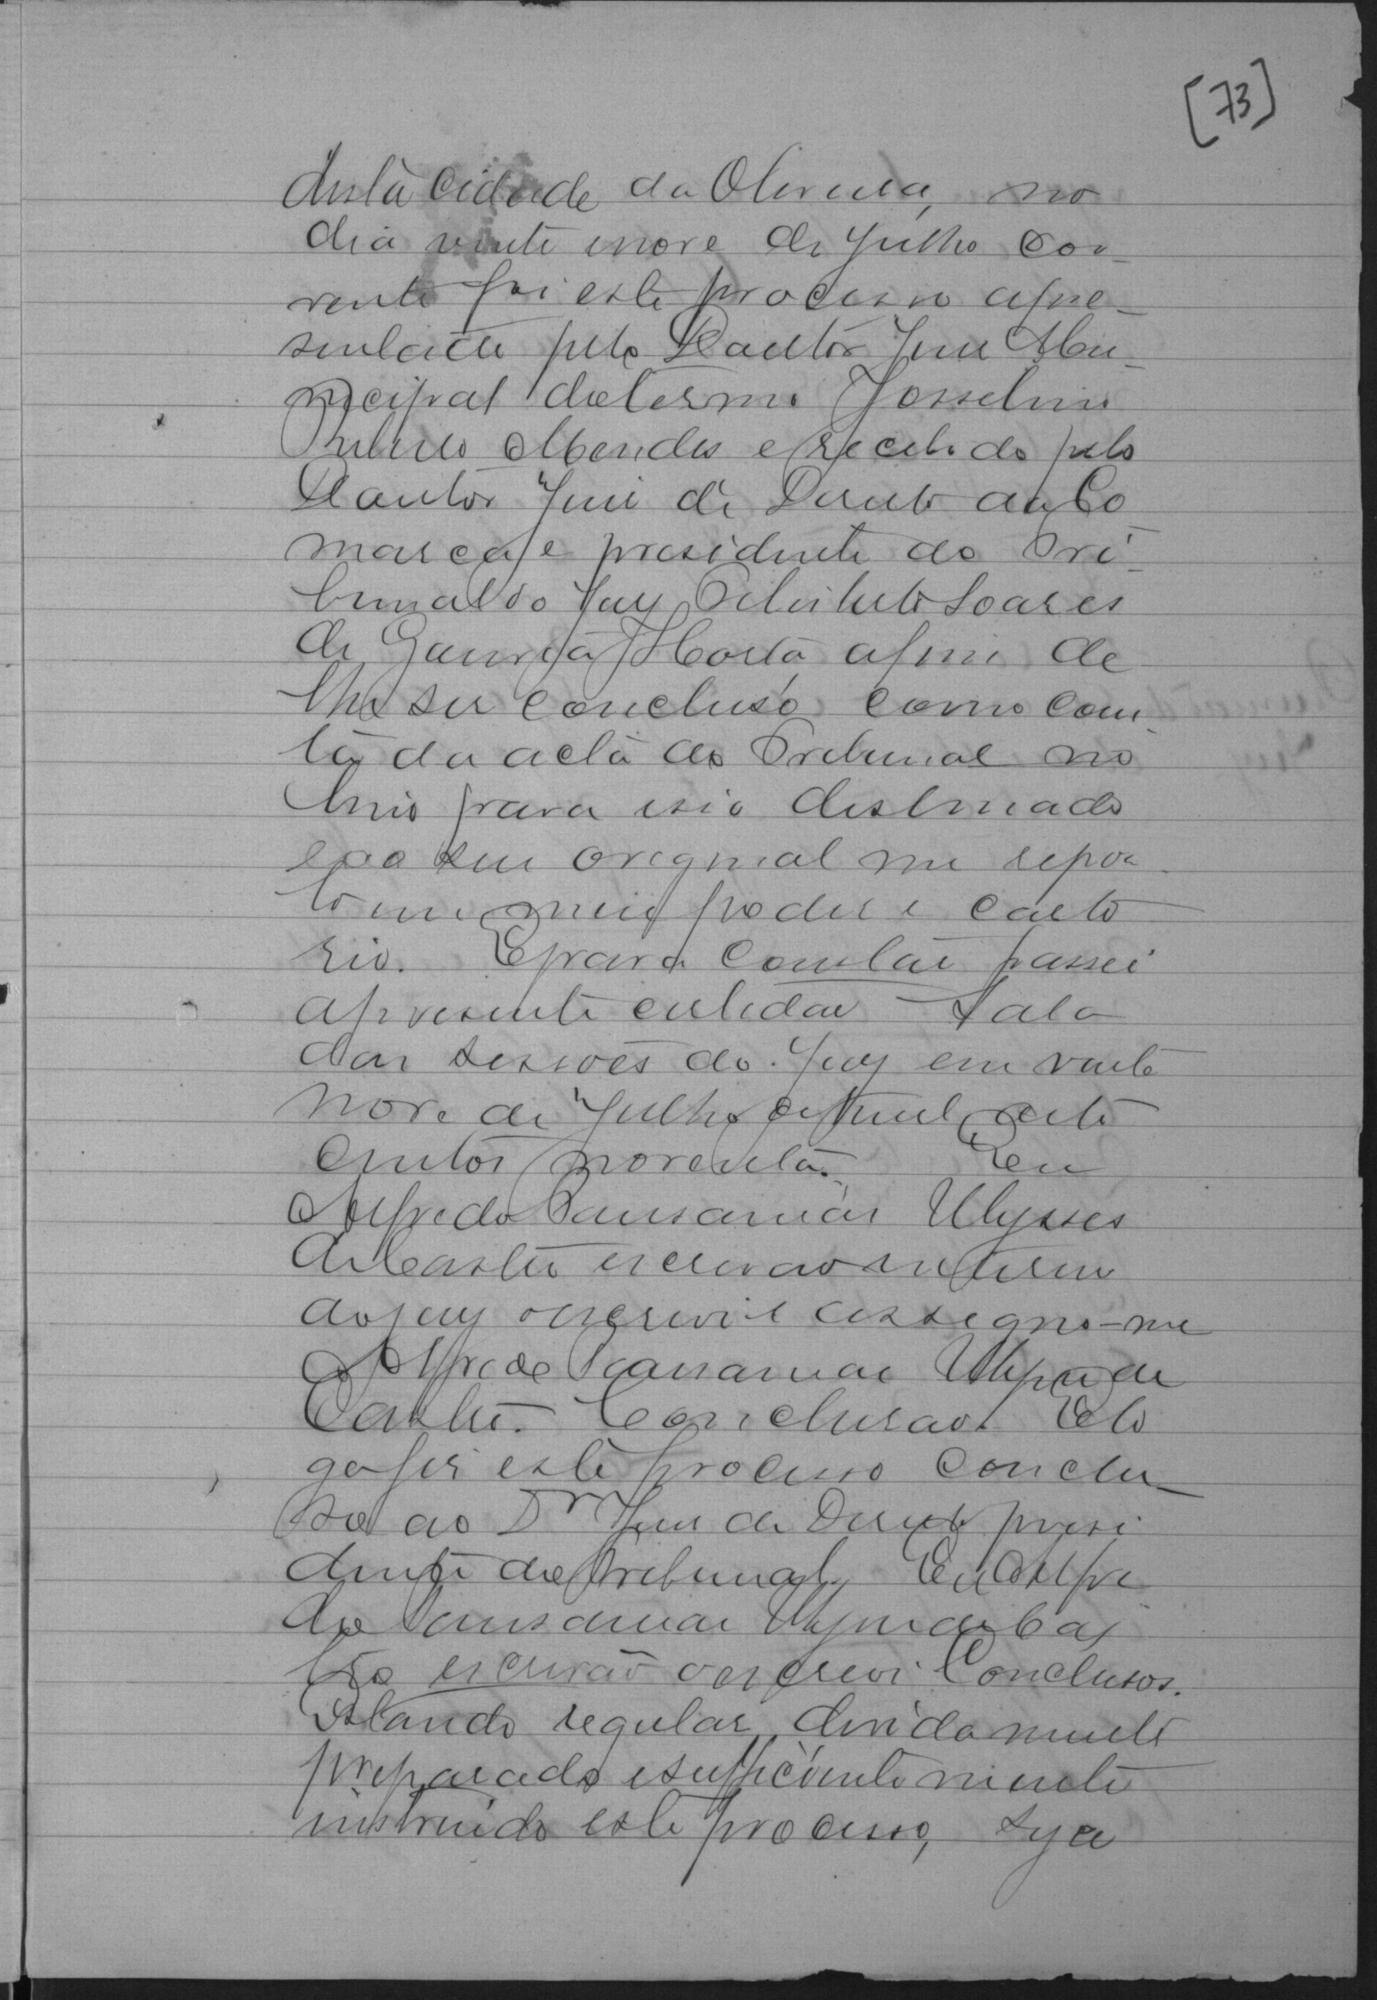 [73]
desta Cidade da Oliveira, no
dia vinte e nove de Julho cor-
rente foi este processo apre-
sentado pelo Doutor Juiz Mu-
nicipal do termo Josselino
Mendes e recebido pelo
Doutor Juiz de Direito da Co
marca, e presidente do Tri-
bunal do Jury Soares
de Gouvêa Horta afim de
lhe ser concluso como cons
ta da acta do Tribunal no
livro para isso destinado
e ao seu original me repor-
to em meu poder e carto
rio. E para constar passei
a presente certidão Sala
das sessões do Jury em vinte
nove de Julho de mil oito
centos noventa. Eu
Alfredo Ulysses
de Castro escrivão interino
do jury o escrevi e assegno-me
Alfredo Ulysses de
Castro. Conclusão. E lo
go fiz este processo conclu-
so ao Dr Juiz de Direito presi
dente do Tribunal. Eu Alfre
do Ulysses de Cas
tro escrivão o escrevi. Conclusos.
Estando regular, devidamente
preparado e sufficientemente
instruido este processo, seja